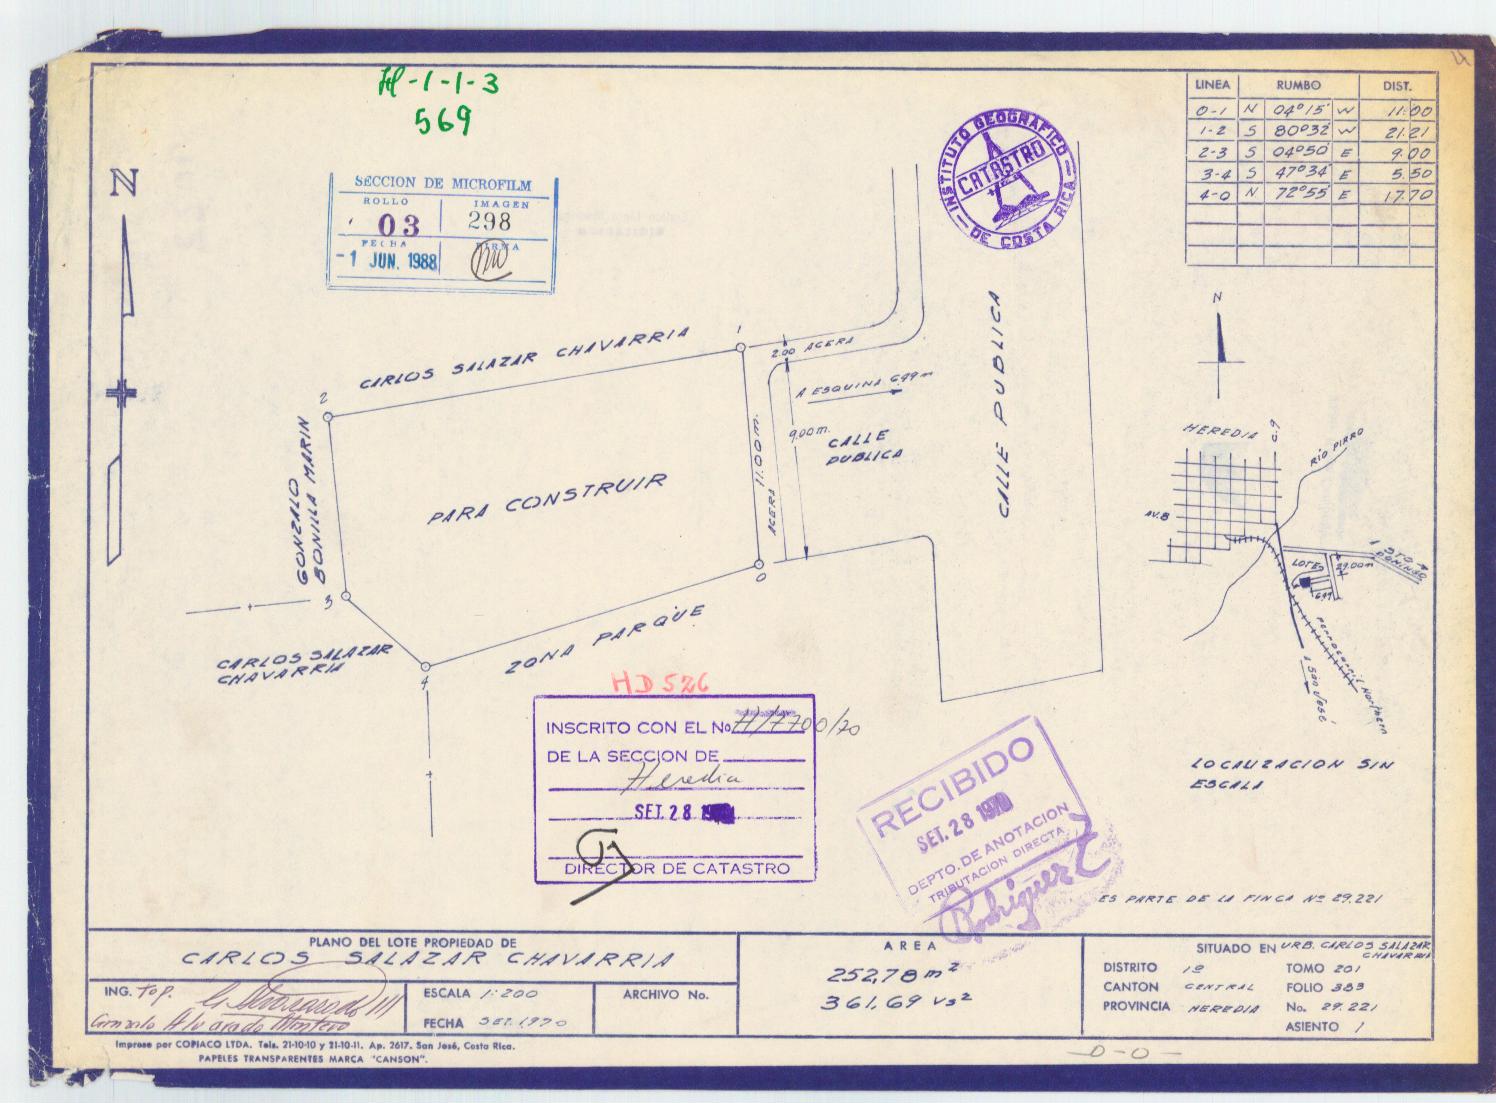 H-1-1-3
569
SECCION DE MICROFILM
ROLLO IMAGEN
03 298
FECHA FIRMA
-1 JUN. 1988
INSTITUTO GEOGRAFICO
CATASTRO
DE COSTA RICA
LINEA RUMBO DIST.
0-1 N 04°15' W 11.00
1-2 S 80°32' W 21.21
2-3 S 04°50' E 9.00
3-4 S 47°34' E 5.50
4-0 N 72°55' E 17.70
N
N
CARLOS SALAZAR CHAVARRIA
1
2
3
4
0
2.00 ACERA
A ESQUINA 6.99 m
9.00 m.
11.00 m.
ACERA
CALLE
PUBLICA
CALLE PUBLICA
GONZALO
BONILLA MARIN
PARA CONSTRUIR
CARLOS SALAZAR
CHAVARRIA
ZONA PARQUE
HEREDIA
C.9
RIO PIRRO
AV.8
A STO
DOMINGO
LOTES
29.00m
6.99
FERROCARRIL Northern
A San José
LOCALIZACION SIN
ESCALA
HD 526
INSCRITO CON EL No. H/7700/70
DE LA SECCION DE
Heredia
SET. 28
DIRECTOR DE CATASTRO
RECIBIDO
SET. 28 1970
DEPTO. DE ANOTACION
TRIBUTACION DIRECTA
Rodríguez
ES PARTE DE LA FINCA Nº 29.221
PLANO DEL LOTE PROPIEDAD DE
CARLOS SALAZAR CHAVARRIA
ING. Top.
Gonzalo Alvarado Montero
ESCALA 1:200
FECHA SET. 1970
ARCHIVO No.
AREA
252,78 m²
361.69 vs²
SITUADO EN URB. CARLOS SALAZAR
CHAVARRIA
DISTRITO 1º TOMO 201
CANTON CENTRAL FOLIO 383
PROVINCIA HEREDIA No. 29.221
ASIENTO 1
Imprese por COPIACO LTDA. Tels. 21-10-10 y 21-10-11. Ap. 2617. San José, Costa Rica.
PAPELES TRANSPARENTES MARCA "CANSON".
-0-0-